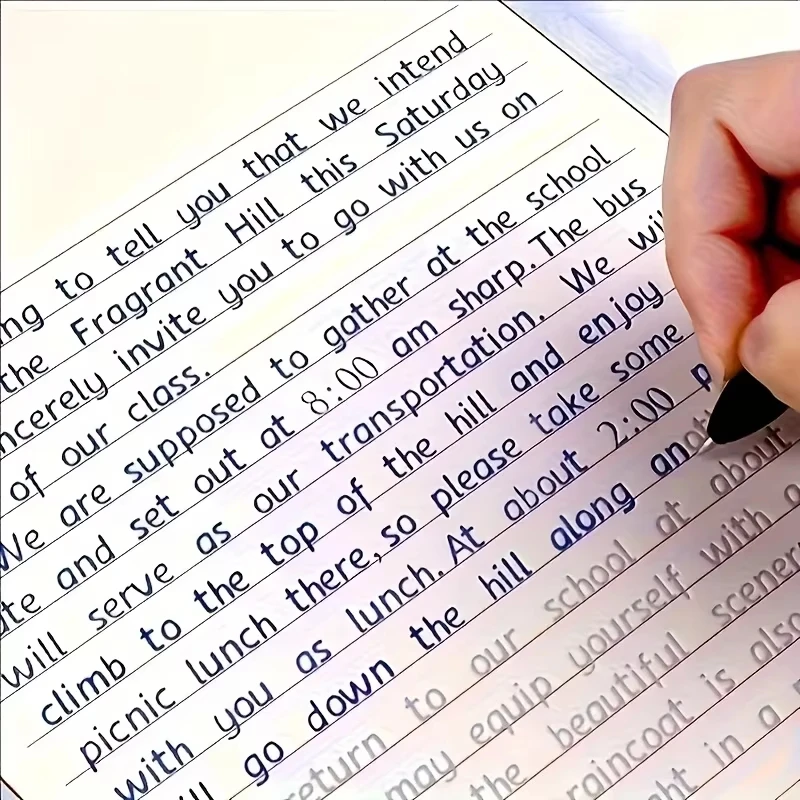 ng to tell you that we intend
the Fragrant Hill this Saturday
ncerely invite you to go with us on
of our class.
We are supposed to gather at the school
te and set out at 8:00 am sharp. The bus
will serve as our transportation. We wil
climb to the top of the hill and enjoy
picnic lunch there, so please take some
with you as lunch. At about 2:00 p
ll go down the hill along anoth
return to our school at about
may equip yourself with a
the beautiful scenery
raincoat is also
ht in a